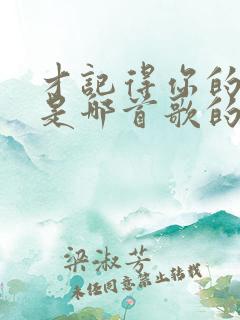 才记得你的
是那首歌的
梁淑芳
未经同意禁止转载